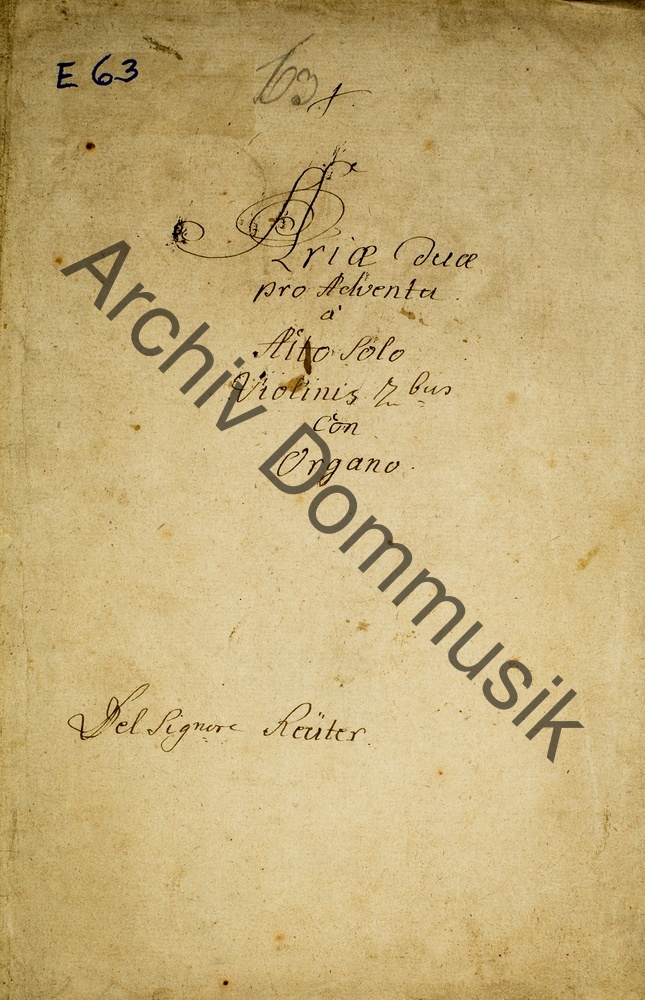 E 63
63
Ariæ duæ
pro Adventu
à
Alto Solo
Violinis 2bus
Con
Organo.
Del Signore Reüter.
Archiv Dommusik